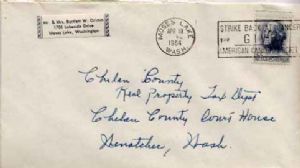 Mr. & Mrs. W. Crimm
1706 Lakeside Drive
Moses Lake, Washington
MOSES LAKE
APR 10
1964
WASH.
STRIKE BACK AT CANCER
GIVE
AMERICAN CANCER SOCIETY
Chelan County
Real Property Tax Dept
Chelan County Court House
Wenatchee, Wash.